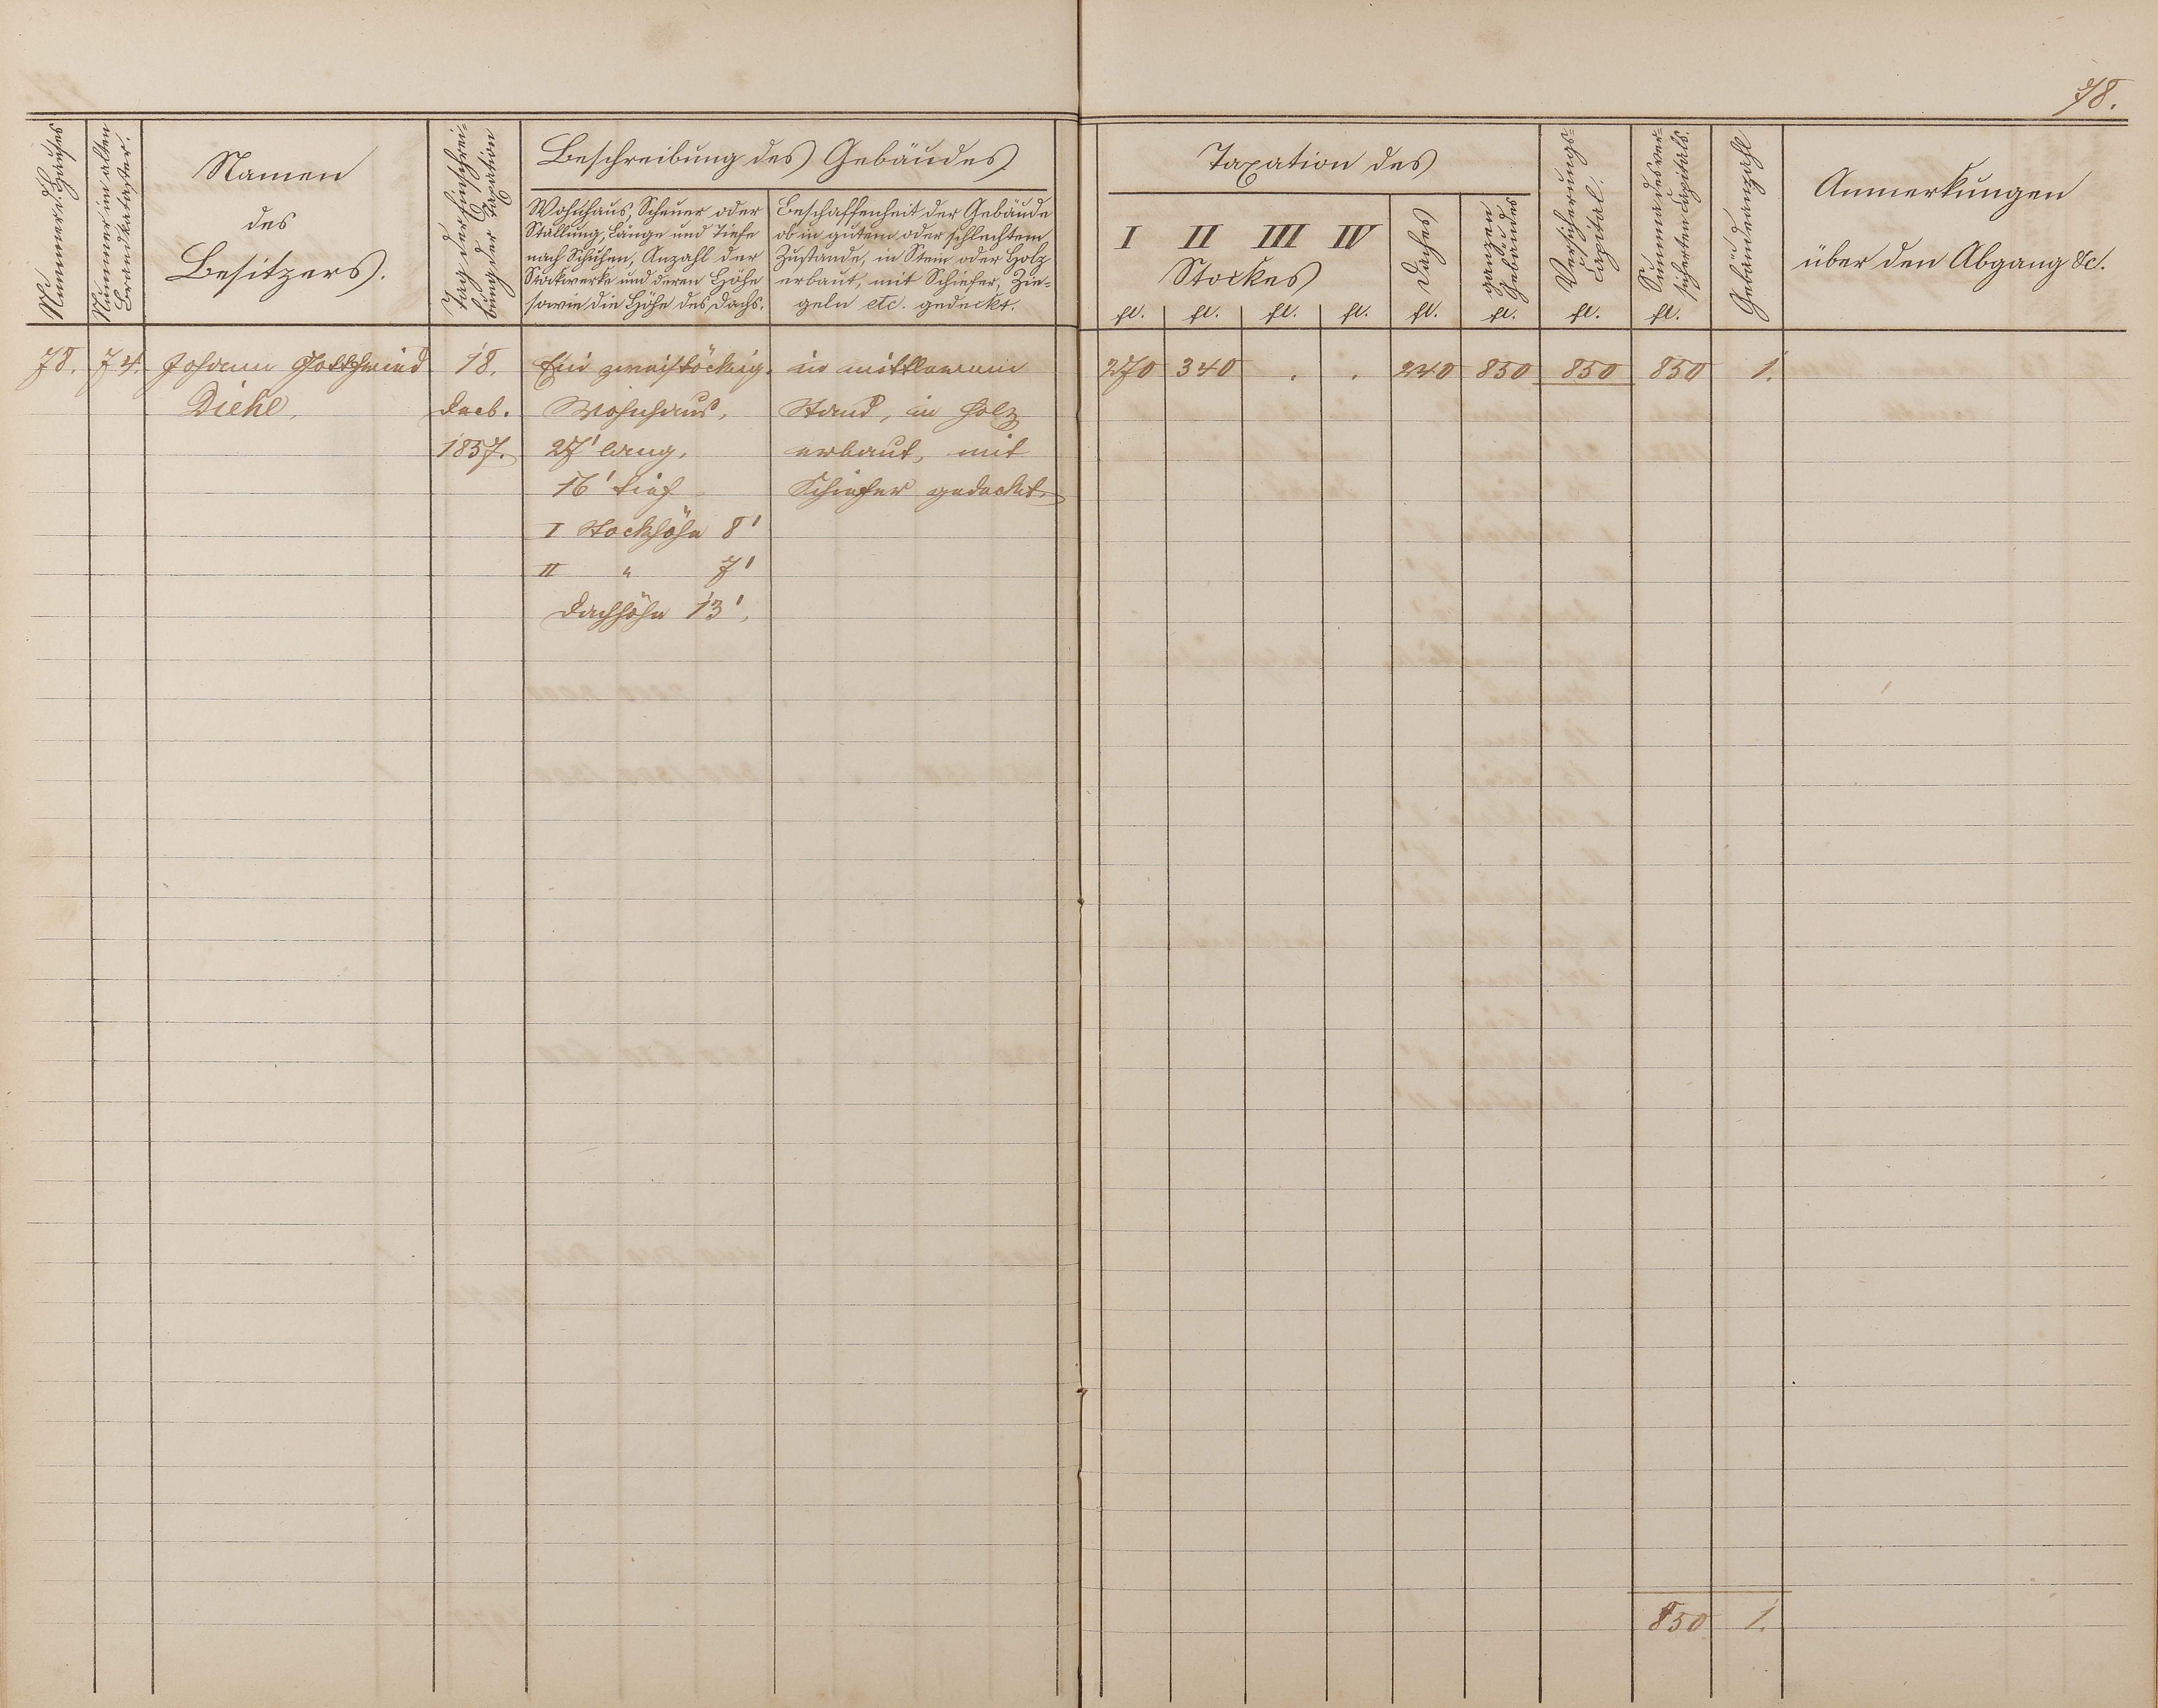 78.
Nummer d. Hauses
Nummer im alten
Brandkataster.
Namen
des
Besitzers.
Tag der Einschrei-
bung der Taxation
Beschreibung des Gebäudes
Wohnhaus, Scheuer oder
Stallung, Länge und Tiefe
nach Schuhen, Anzahl der
Stockwerke und deren Höhe
sowie die Höhe des Dachs.
Beschaffenheit der Gebäude
ob in gutem oder schlechtem
Zustande, in Stein oder Holz
erbaut, mit Schiefer, Zie-
geln etc. gedeckt.
Taxation des
I II III IV
Stockes
Daches
ganzen
Gebäudes
Versicherungs-
Capital.
Summa des ver-
sicherten Capitals.
Gebäudeanzahl
Anmerkungen
über den Abgang &c.
fl. fl. fl. fl. fl. fl. fl. fl.
78. 74. Johann 18. Ein zweistöckig. in mittlerem 270 340 . . 240 850 850 850 1.
Diehl. Decb. Wohnhaus, Stand, in Holz
1857. 27' lang, erbaut, mit
16' tief Schiefer gedeckt.
I Stockhöhe 8'
II " 7'
Dachhöhe 13'.
850 1.